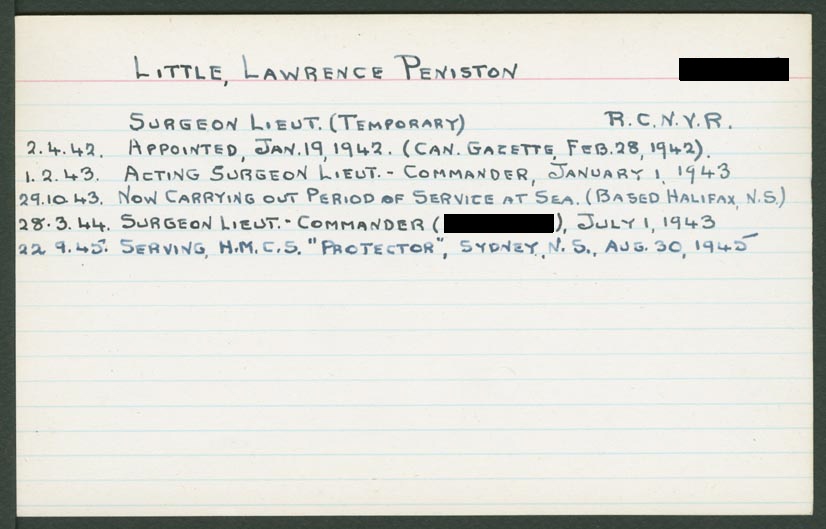 LITTLE, LAWRENCE PENISTON
SURGEON LIEUT. (TEMPORARY) R.C.N.V.R.
2.4.42. APPOINTED, JAN.19, 1942. (CAN. GAZETTE, FEB.28, 1942).
1.2.43. ACTING SURGEON LIEUT.- COMMANDER, JANUARY 1, 1943
29.10.43. NOW CARRYING OUT PERIOD OF SERVICE AT SEA. (BASED HALIFAX, N.S.)
28.3.44. SURGEON LIEUT.- COMMANDER ( ), JULY 1, 1943
22.9.45. SERVING, H.M.C.S. "PROTECTOR", SYDNEY, N.S., AUG. 30, 1945